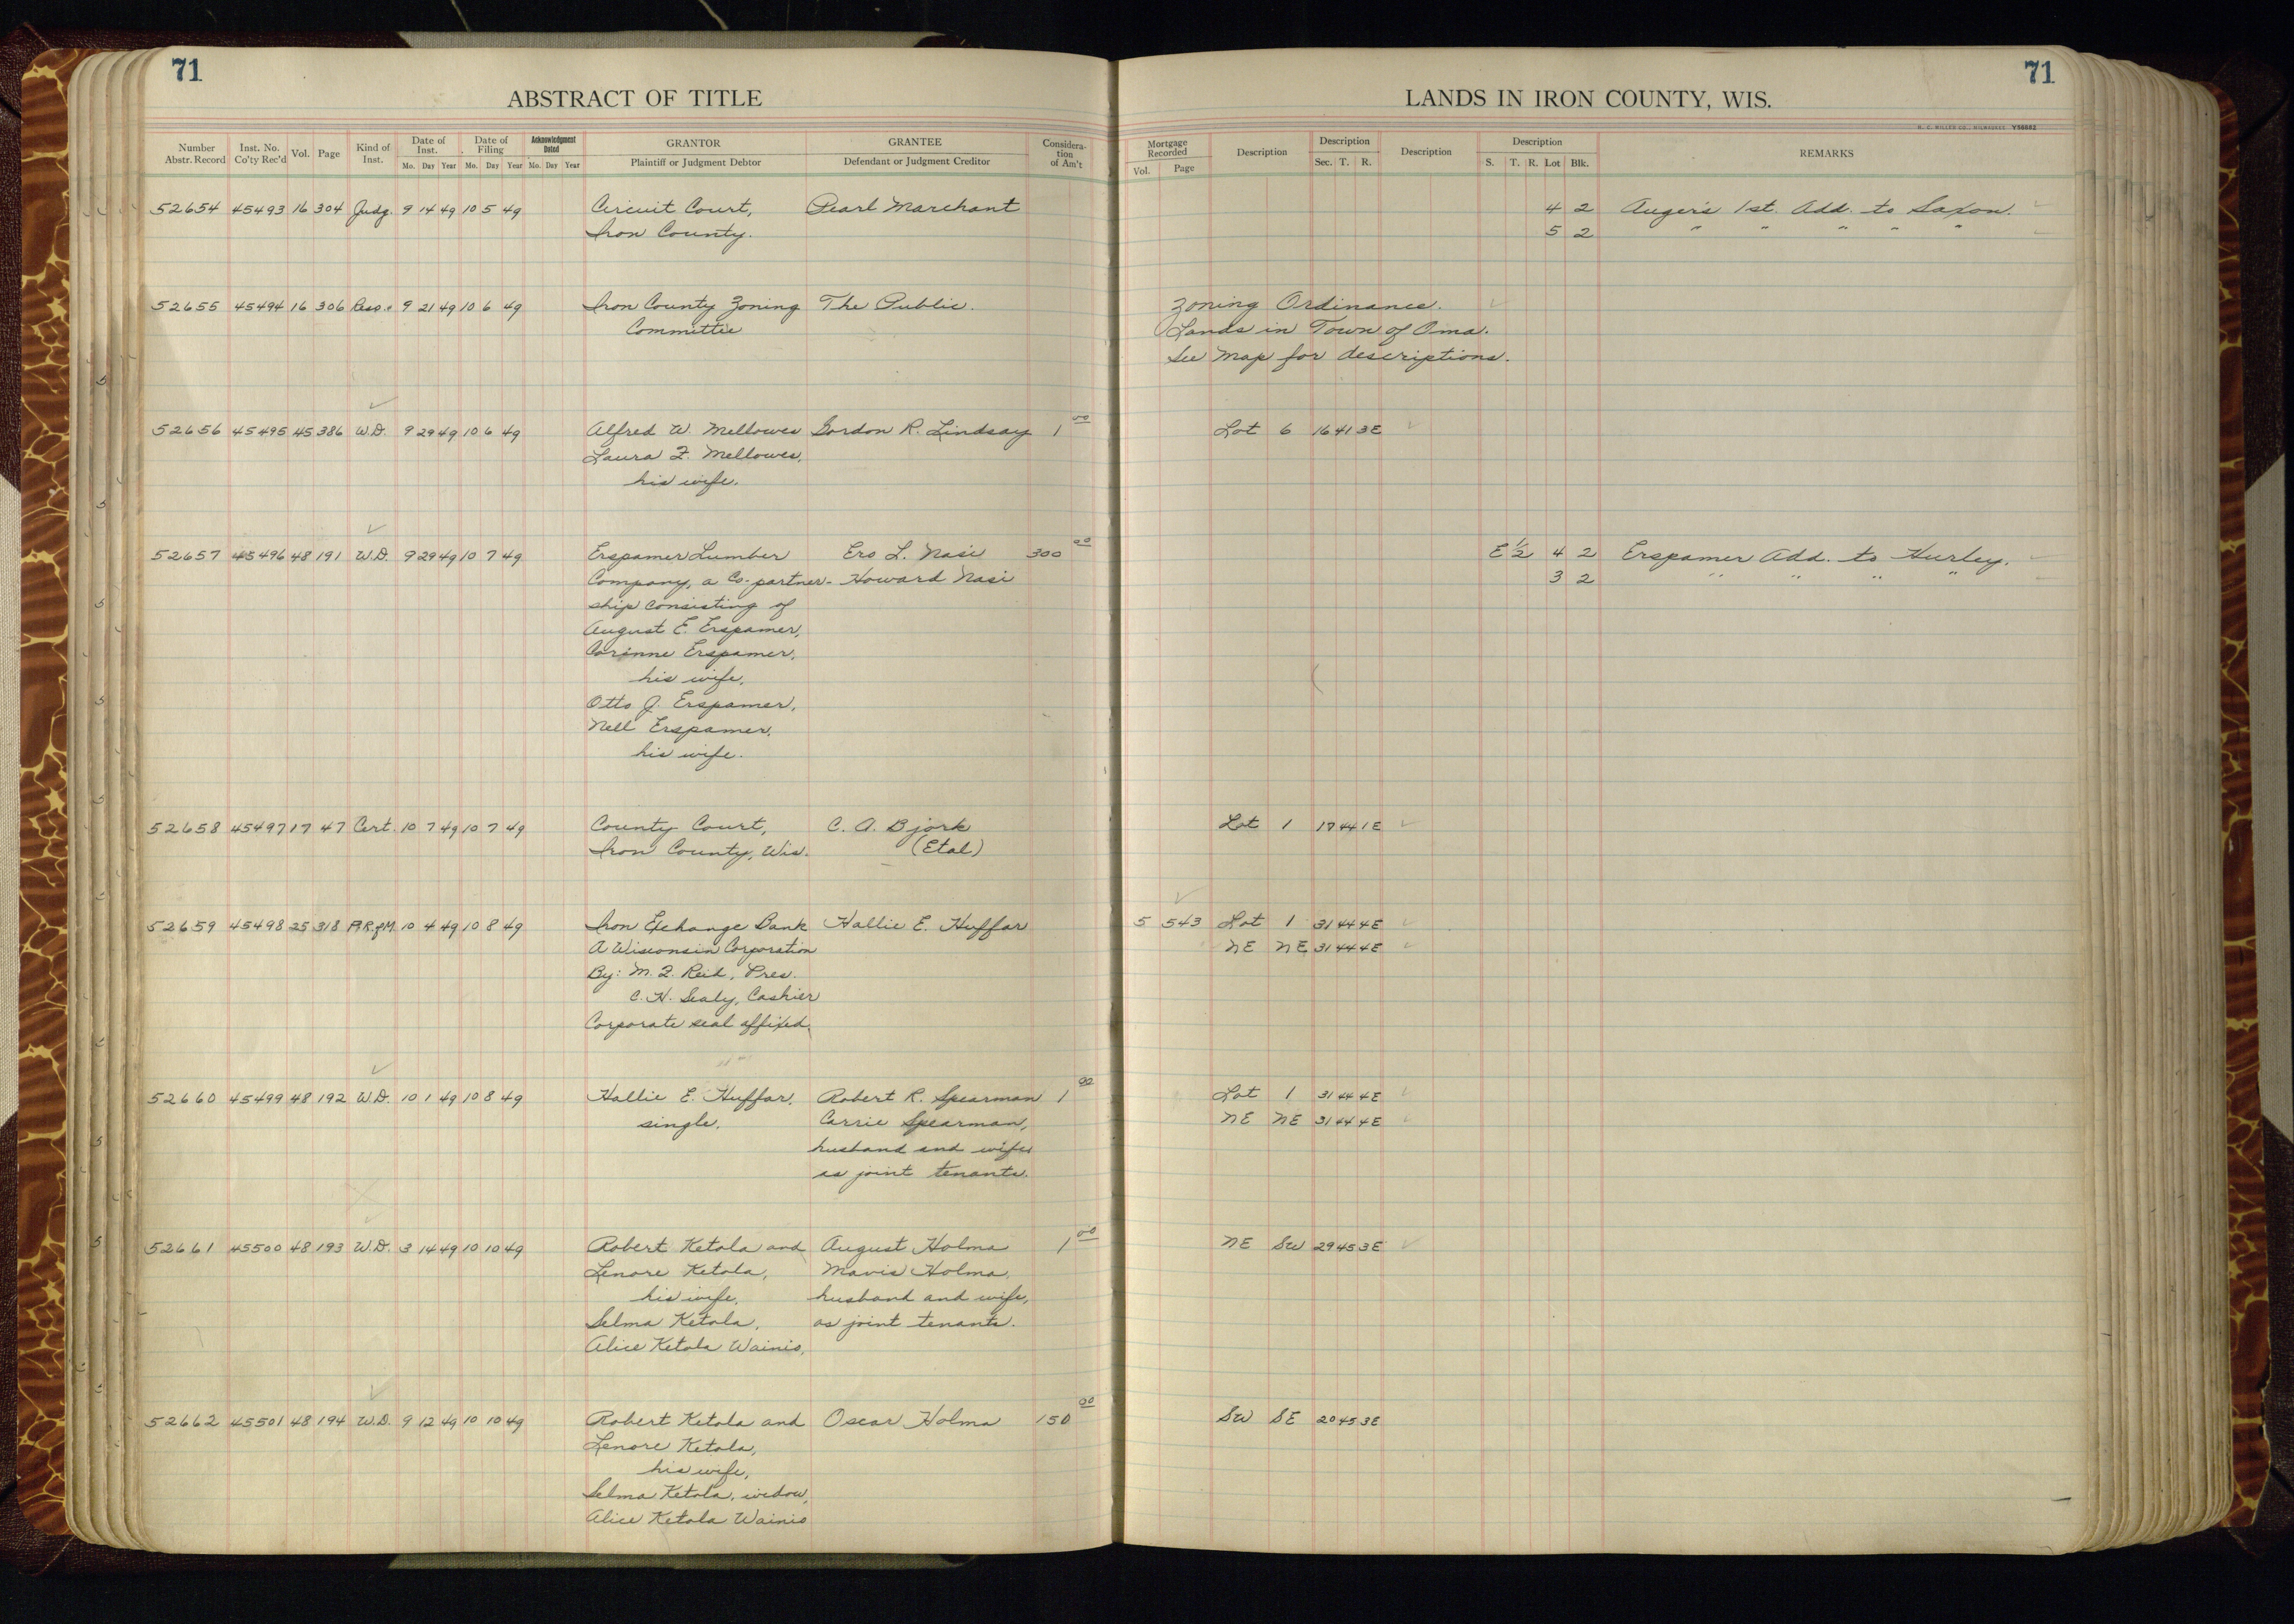 71
ABSTRACT OF TITLE
Number Abstr. Record Inst. No. Co'ty Rec'd Vol. Page Kind of Inst. Date of Inst. Mo. Day Year Date of Filing Mo. Day Year Acknowledgment Dated Mo. Day Year GRANTOR Plaintiff or Judgment Debtor GRANTEE Defendant or Judgment Creditor Consideration of Am't
52654 45493 16 304 Judg. 9 14 49 10 5 49 Circuit Court, Pearl Marchant
Iron County.
52655 45494 16 306 Reso. 9 21 49 10 6 49 Iron County Zoning The Public.
Committee
52656 45495 45 386 W.D. 9 29 49 10 6 49 Alfred W. Mellowes Gordon R. Lindsay 1 00
Laura F. Mellowes,
his wife.
52657 45496 48 191 W.D. 9 29 49 10 7 49 Erspamer Lumber Ero L. Nasi 300 00
Company, a Co-partner- Howard Nasi
ship consisting of
August E. Erspamer,
Corinne Erspamer,
his wife,
Otto J. Erspamer,
Nell Erspamer,
his wife.
52658 45497 17 47 Cert. 10 7 49 10 7 49 County Court, C. A. Bjork
Iron County, Wis. (Etal)
52659 45498 25 318 P.R.of M. 10 4 49 10 8 49 Iron Exchange Bank Hallie E. Huffar
A Wisconsin Corporation
By: M. F. Reid, Pres.
C. H. Sealy, Cashier
Corporate seal affixed.
52660 45499 48 192 W.D. 10 1 49 10 8 49 Hallie E. Huffar, Robert R. Spearman 1 00
single. Carrie Spearman,
husband and wife
as joint tenants.
52661 45500 48 193 W.D. 3 14 49 10 10 49 Robert Ketola and August Holma 1 00
Lenore Ketola, Mavis Holma,
his wife, husband and wife,
Selma Ketola, as joint tenants.
Alice Ketola Wainio,
52662 45501 48 194 W.D. 9 12 49 10 10 49 Robert Ketola and Oscar Holma 150 00
Lenore Ketola,
his wife,
Selma Ketola, widow,
Alice Ketola Wainio
71
LANDS IN IRON COUNTY, WIS.
H. C. MILLER CO., MILWAUKEE Y58682
Mortgage Recorded Vol. Page Description Description Sec. T. R. Description Description S. T. R. Lot Blk. REMARKS
4 2 Auger's 1st. Add. to Saxon.
5 2 " " " " "
Zoning Ordinance.
Lands in Town of Oma.
See Map for descriptions.
Lot 6 16 41 3E
E 1/2 4 2 Erspamer Add. to Hurley.
3 2 " " " "
Lot 1 17 44 1E
5 543 Lot 1 31 44 4E
NE NE 31 44 4E
Lot 1 31 44 4E
NE NE 31 44 4E
NE SW 29 45 3E
SW SE 20 45 3E